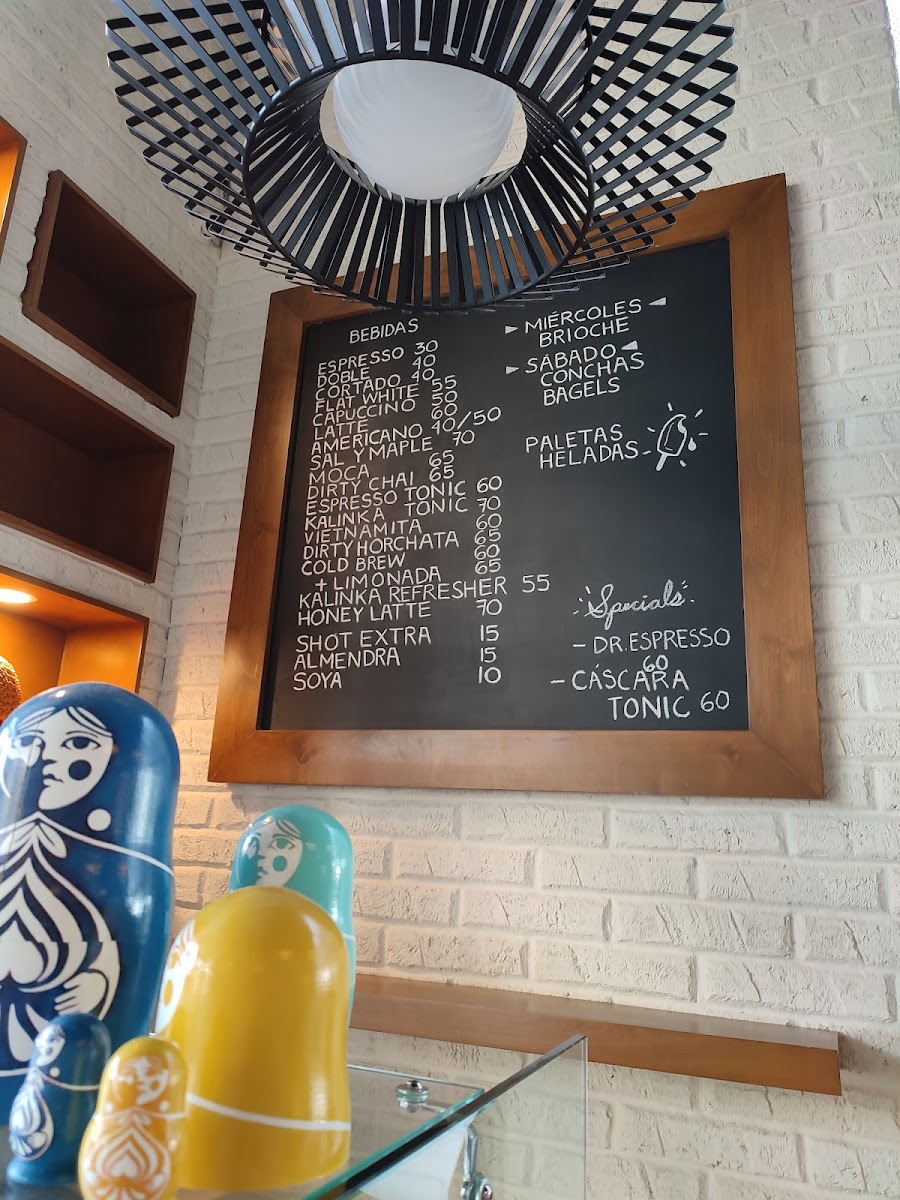 BEBIDAS
ESPRESSO 30
DOBLE 40
CORTADO 40
FLAT WHITE 55
CAPUCCINO 50
LATTE 60
AMERICANO 40/50
SAL Y MAPLE 70
MOCA 65
DIRTY CHAI 65
ESPRESSO TONIC 60
KALINKA TONIC 70
VIETNAMITA 60
DIRTY HORCHATA 65
COLD BREW 60
+ LIMONADA 65
KALINKA REFRESHER 55
HONEY LATTE 70
SHOT EXTRA 15
ALMENDRA 15
SOYA 10
MIÉRCOLES
BRIOCHE
SÁBADO
CONCHAS
BAGELS
PALETAS
HELADAS
Specials
- DR. ESPRESSO
60
- CÁSCARA
TONIC 60